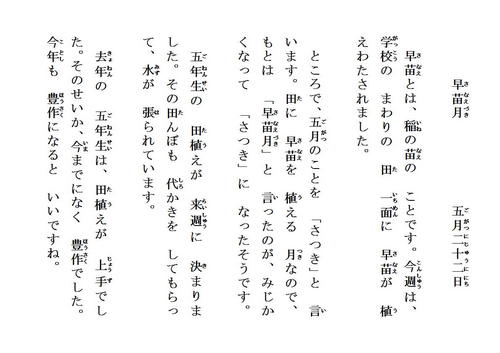 早苗月
五月二十二日
早苗とは、稲の苗の　ことです。今週は、
学校の　まわりの　田　一面に　早苗が　植
えわたされました。
ところで、五月のことを　「さつき」と　言
います。田に　早苗を　植える　月なので、
もとは　「早苗月」と　言ったのが、みじか
くなって　「さつき」に　なったそうです。
五年生の　田植えが　来週に　決まりま
した。その田んぼも　代かきを　してもらっ
て、水が　張られています。
去年の　五年生は、田植えが　上手でし
た。そのせいか、今までになく　豊作でした。
今年も　豊作になると　いいですね。